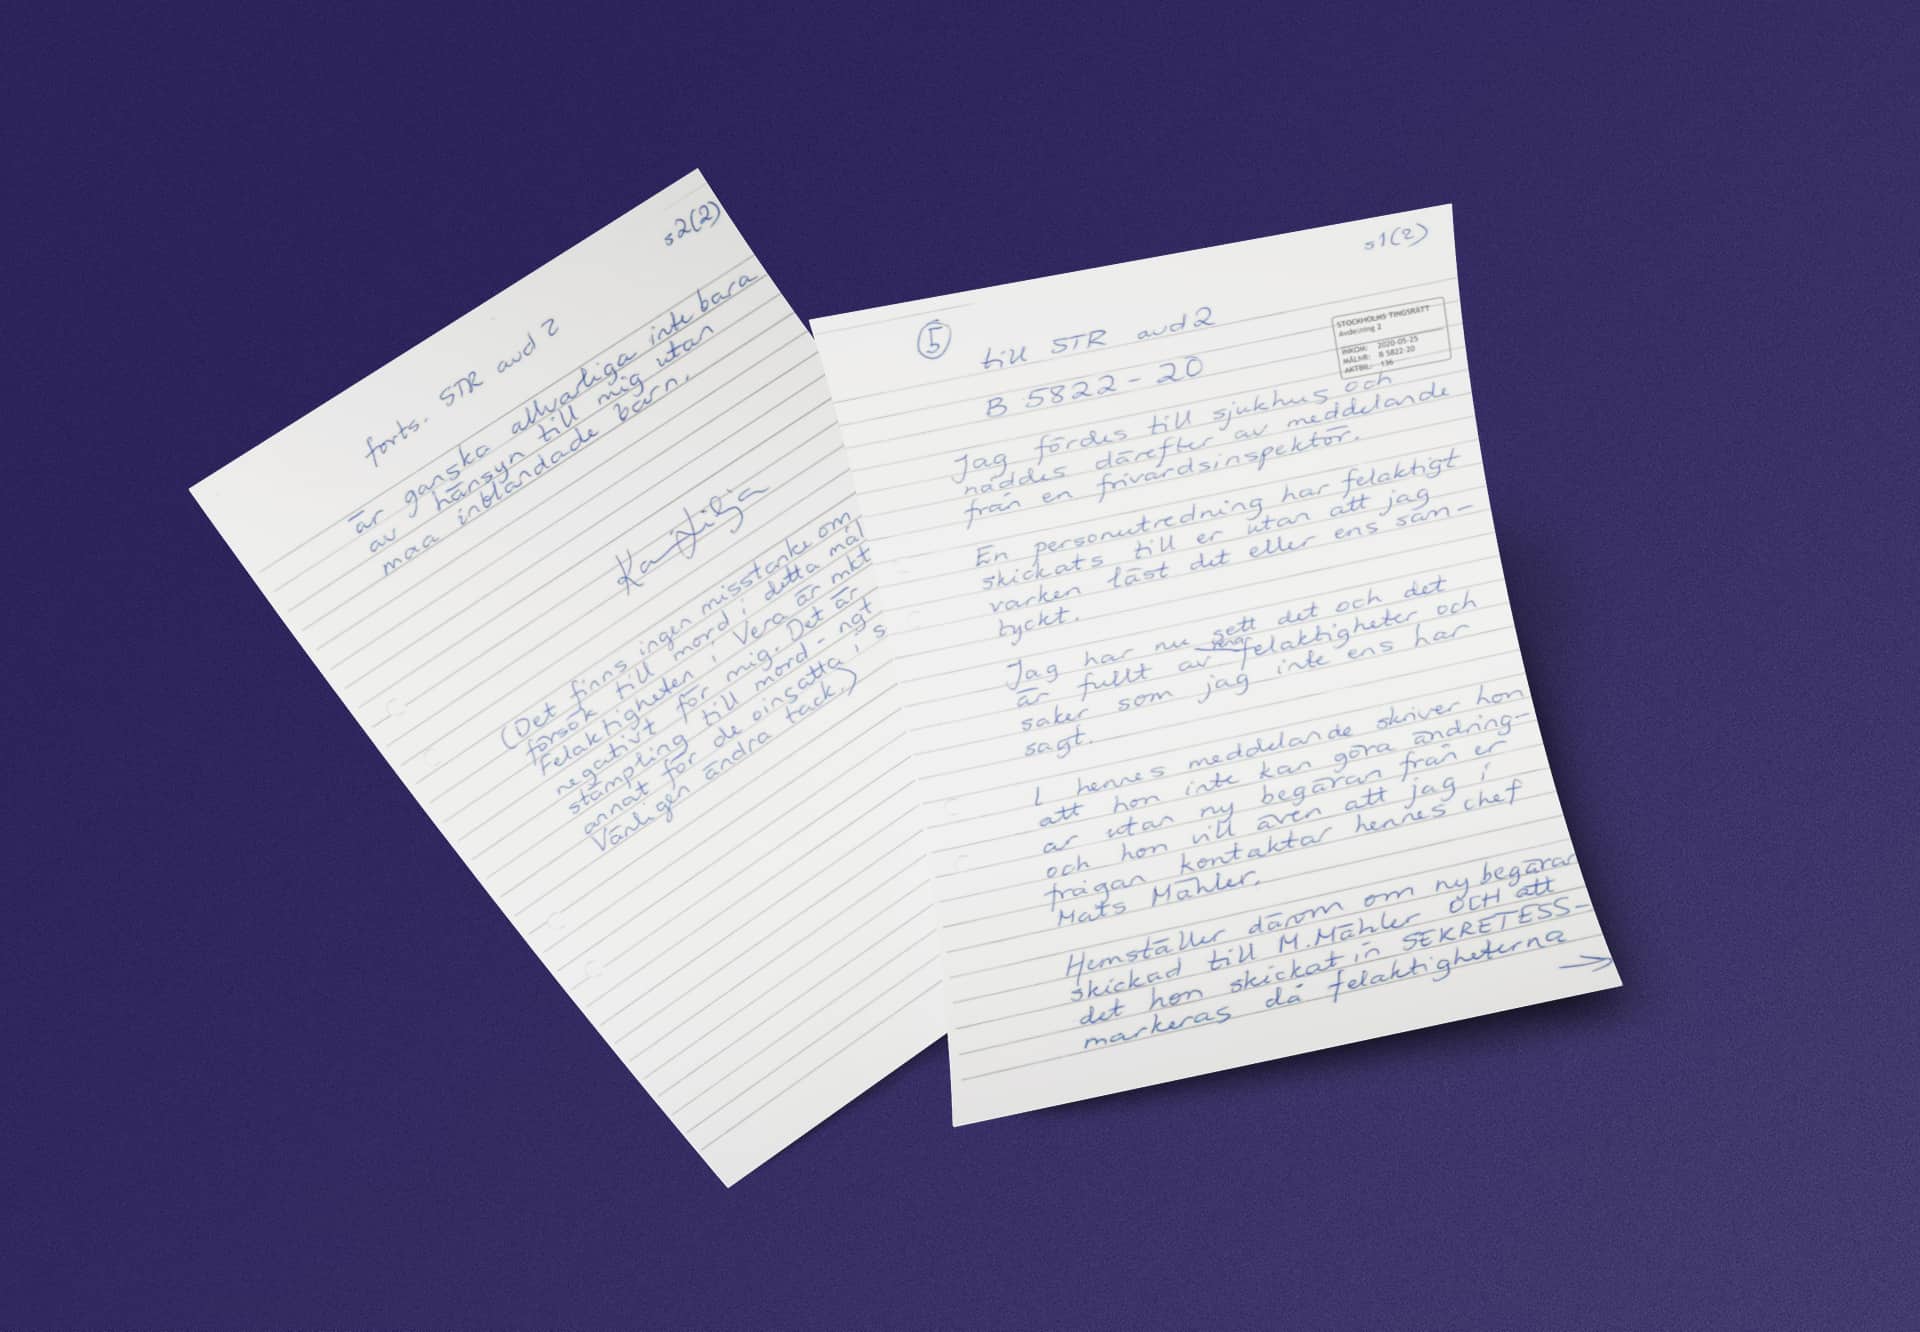 s1(2)
5
till STR avd 2
B 5822-20
STOCKHOLMS TINGSRÄTT
Avdelning 2
INKOM: 2020-05-25
MÅLNR: B 5822-20
AKTBIL: 136
Jag fördes till sjukhus och
nåddes därefter av meddelande
från en frivårdsinspektör.
En personutredning har felaktigt
skickats till er utan att jag
varken läst det eller ens sam-
tyckt.
Jag har nu sett det och det
är fullt av felaktigheter och
saker som jag inte ens har
sagt.
I hennes meddelande skriver hon
att hon inte kan göra ändring-
ar utan ny begäran från er
och hon vill även att jag i
frågan kontaktar hennes chef
Mats Mähler.
Hemställer därom om ny begäran
skickad till M.Mähler OCH att
det hon skickat in SEKRETESS-
markeras då felaktigheterna
→
s2(2)
forts. STR avd 2
är ganska allvarliga inte bara
av hänsyn till mig utan
maa inblandade barn.
(Det finns ingen misstanke om
försök till mord i detta mål
Felaktigheten i Vera är mkt
negativt för mig. Det är
stämpling till mord - ngt
annat för de oinsatta i s
Vänligen ändra tack.)